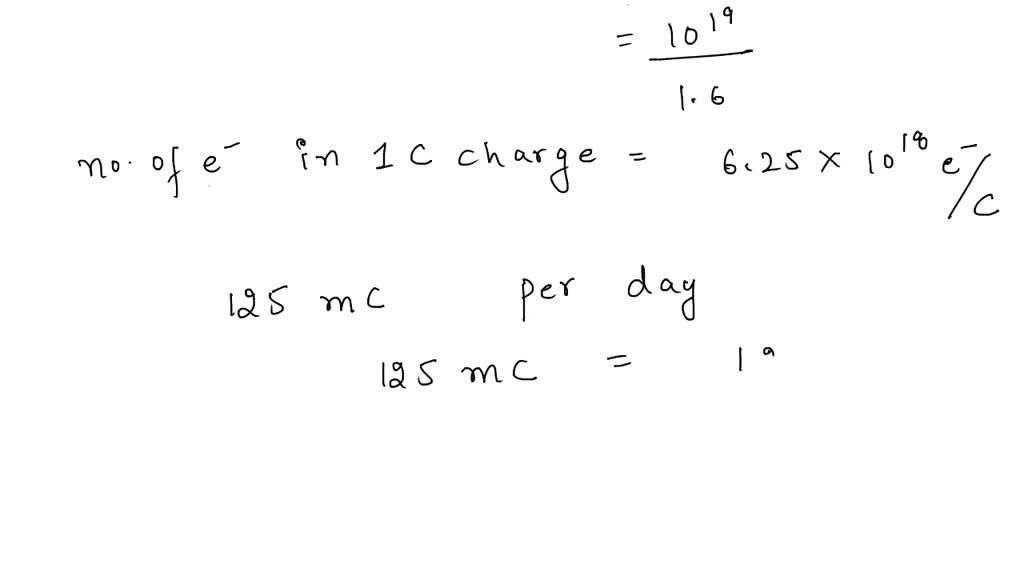 = 10^19 / 1.6
no. of e⁻ in 1 C charge = 6.25 × 10^18 e⁻/C
125 mC per day
125 mC = 1